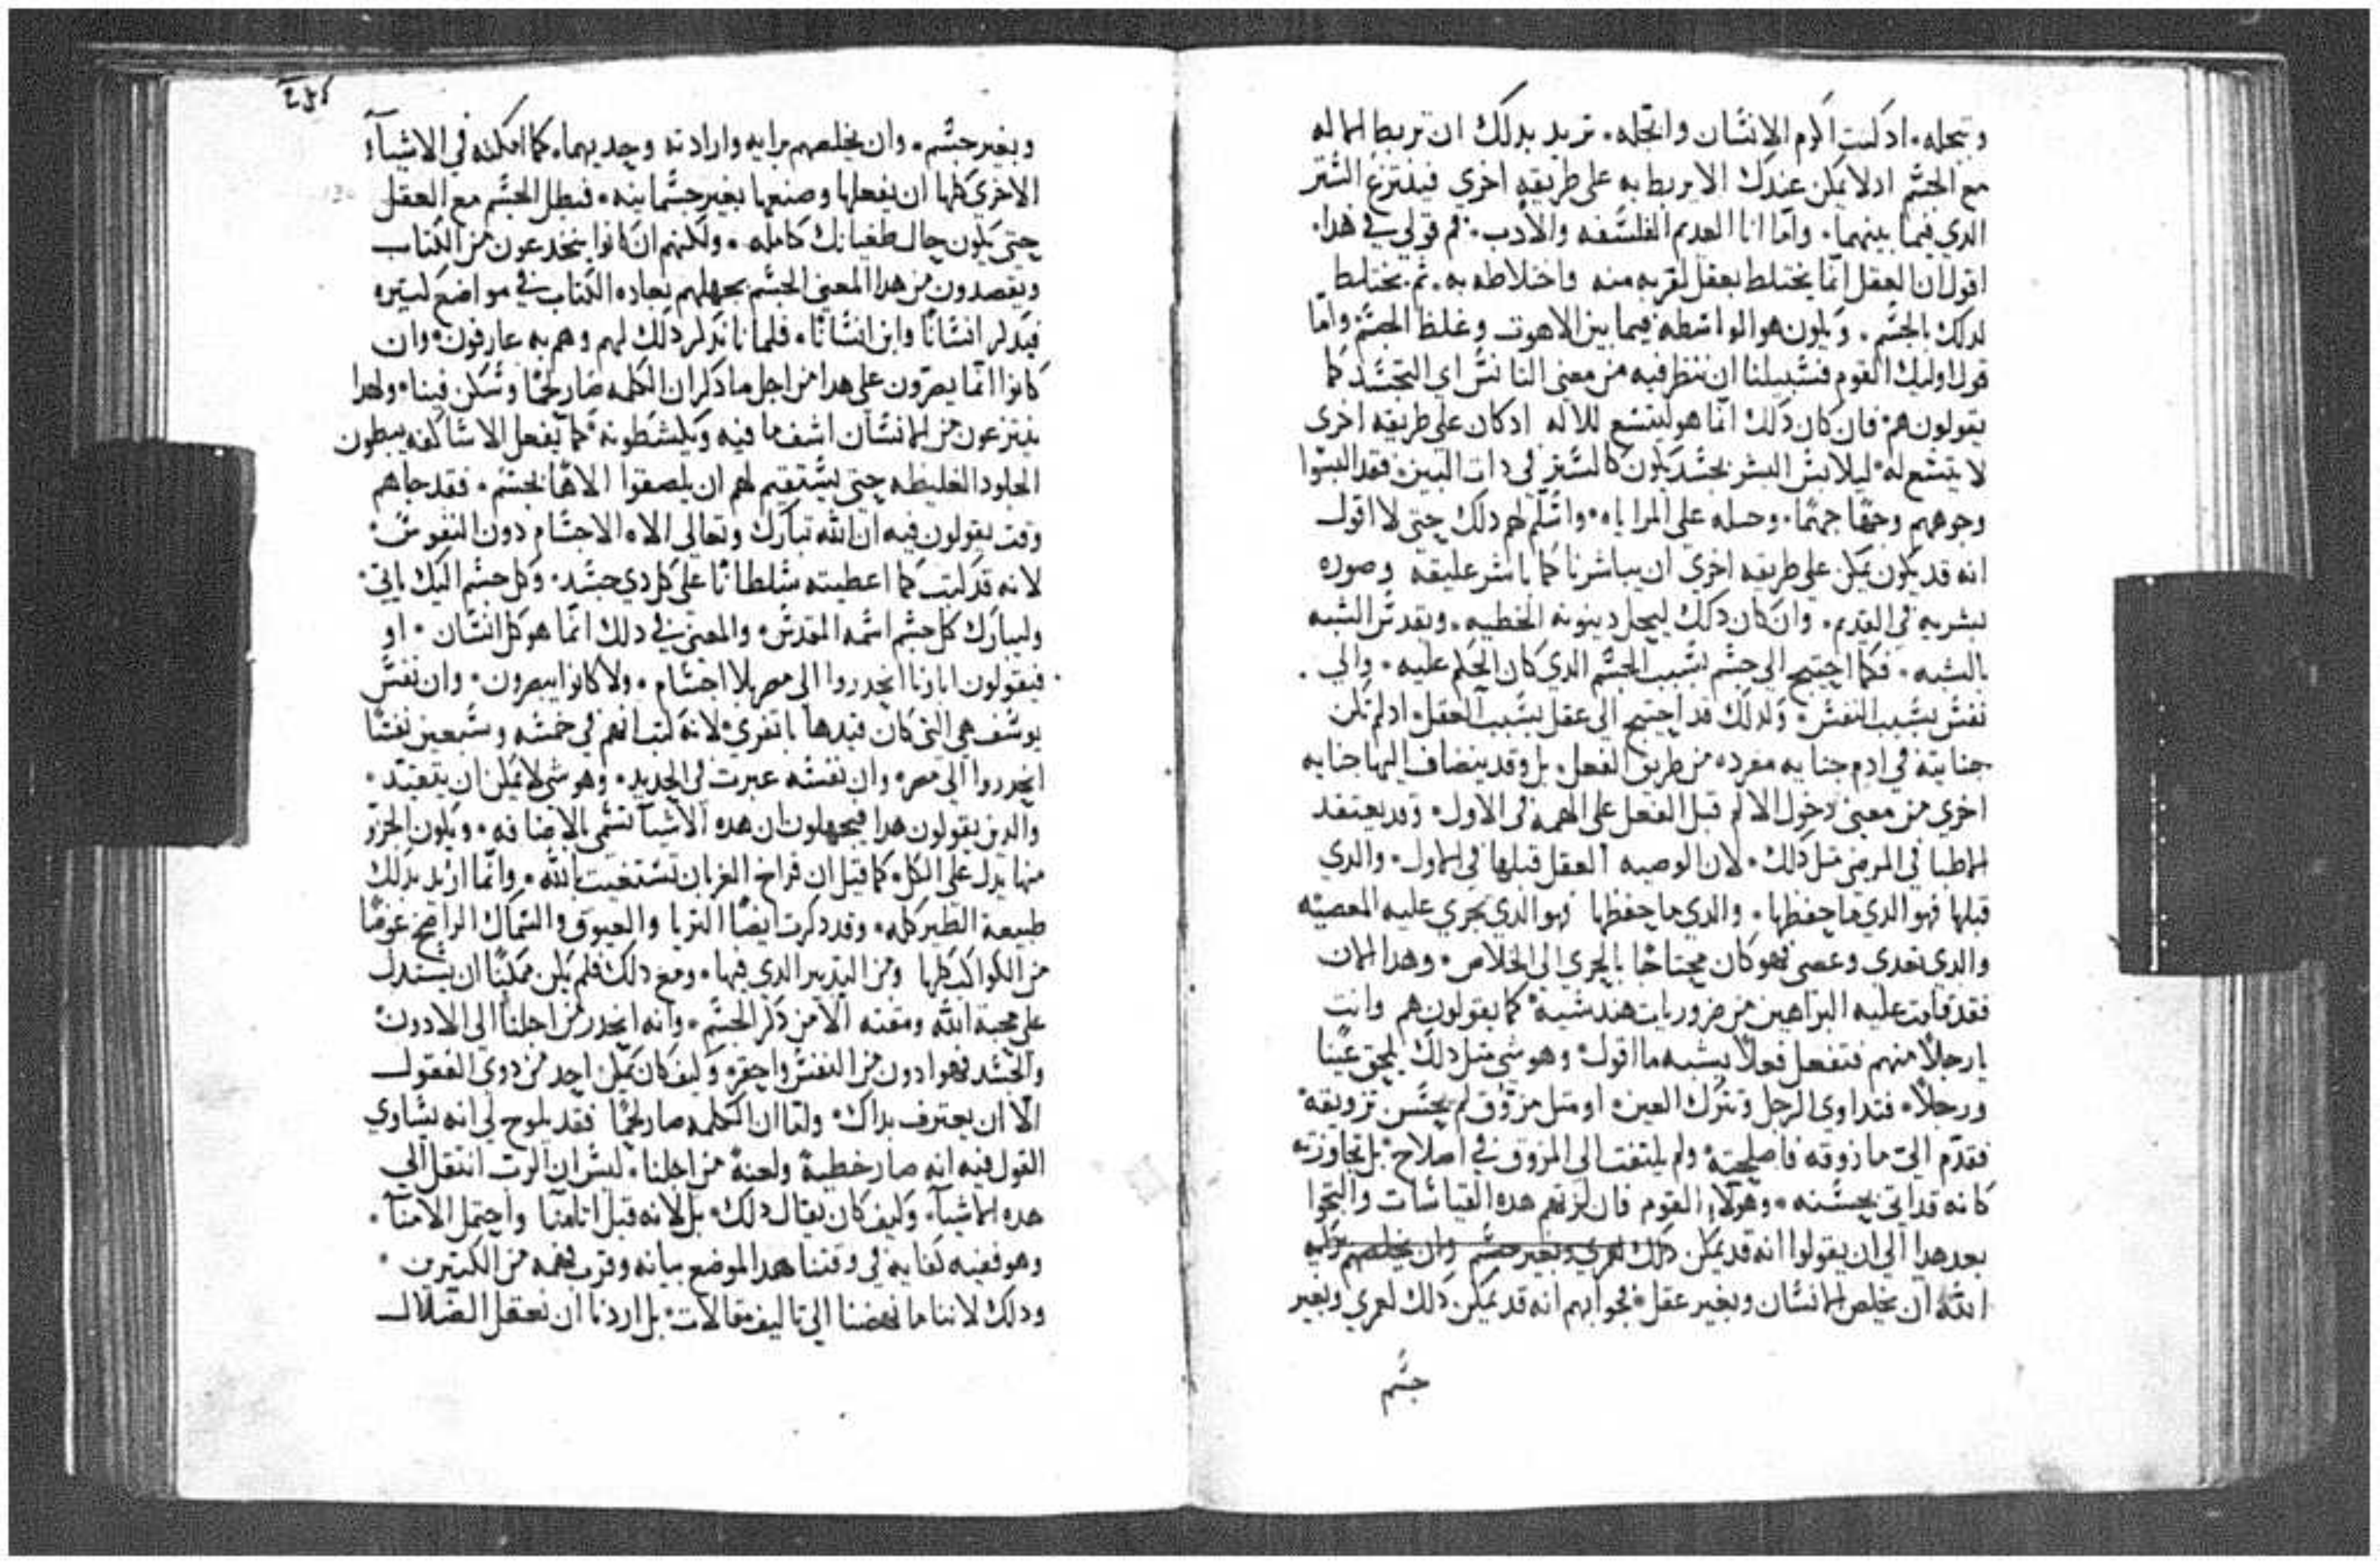 وتجله. اد كنت اكرم الانسان واتجله. تريد بدلك ان تربط الماله
مع الجسم ادلا يمكن عندك الا يربط به على طريقه اخري فينتزع الستر
الدي فيما بينهما. واما انا العديم الفلسفه والادب. فم قولي في هدا.
اقول ان العقل انما يختلط بعقل لقربه منه واختلاطه به. ثم يختلط
لدلك بالجسم. ويكون هو الواسطه فيما بين الاهوت وغلظ الجسم واما
قول اوليك القوم فسبيلنا ان ننظر فيه من معنى التانس اي التجسد كما
يقولون هم. فان كان دلك انما هو ليتسع للاله ادكان على طريقه اخرى
لا يتسع له ليلابس البشر بجسد يكون كالستر في دات البين. فقد البسوا
وجوههم وجها جهما. وحيله على المراياه. واسلم لهم دلك حتى لا اقول
انه قد يكون يمكن على طريقه اخري ان يباشرنا كما باشر عليقه وصوره
بشريه في القديم. وان كان دلك ليحل دينونه الخطيه. ويقدس الشبه
بالشبه. فكما احتيج الى جسم بسبب الجسم الدي كان الحكم عليه. والى
نفس بسبب النفس. ولدلك قد احتيج الى عقل بسبب العقل ادلم تكن
جنايته في ادم جنايه مفرده من طريق الفعل. بل وقد ينضاف اليها جنايه
اخري من معنى دخول الالم قبل الفعل على الهمه في الاول. وقد يعتقد
الاطبا في المرضى متل دلك. لان الوصيه العقل قبلها في الاول. والدي
قبلها فهو الدي ما حفظها. والدي ما حفظها فهو الدي يجري عليه المعصيه
والدي تعدي وعصى فهو كان محتاجا بالجري الى الخلاص. وهدا الان
فقد قامت عليه البراهين من ضروريات هندسيه كما يقولون هم وانت
يا رجلا منهم فتفعل فعلا يشبه ما اقول. وهو شي متل دلك يلحق عينا
ورجلا. فتداوي الرجل وتترك العين. او متل مزوق لم يحسن تزويقه
فتقدم الى ما زوقه فاصلحته ولم يلتفت الى المزوق في اصلاح. بل تجاوزته
كانه قد اتى بحسنه. وهولاء القوم فان لزتهم هده القياسات والتجوا
بعد هدا الى ان يقولوا انه قد يمكن دلك لعري وبغير جسم وان يخلصهم برايه
الله ان يخلص الانسان وبغير عقل. فجوابهم انه قد يمكن دلك لعري وبغير
جسم
وبغير جسم. وان يخلصهم برايه وارادته وحديهما. كما امكنه في الاشياء
الاخري كلها ان يفعلها وصنعها بغير جسمانيه. فبطل الجسم مع العقل
حتى يكون حال طغيانك كامله. ولكنهم ان كانوا ينخدعون من الكتاب
ويقصدون من هدا المعنى الجسم بجهلهم بعاده الكتاب في مواضع كتيره
فيدكر انسانا وابن انسانا. فلما نا ندكر دلك لهم وهم به عارفون. وان
كانوا انما يصرون على هدا من اجل ما دكر ان الكلمه صار لحما وسكن فينا. ولهدا
ينتزعون من الانسان اشف ما فيه ويكشطونه كما يفعل الاساكفه ببطون
الجلود الغليظه حتى يستقيم لهم ان يلصقوا الاها بجسم. فقد جاهم
وقت يقولون فيه ان الله تبارك وتعالى الاه الاجسام دون النفوس
لانه قد كتب كما اعطيته سلطانا على كل دي جسد. وكل جسم اليك ياتي.
وليبارك كل جسم اسمه المقدس. والمعنى في دلك انما هو كل انسان. او
فيقولون ابارنا انحدروا الى مصر بلا اجسام. ولا كانوا يبصرون. وان نفس
يوسف هي التي كان قيدها باتفري لانه كتب انهم في خمسه وسبعين نفسا
انحدروا الى مصر. وان نفسه عبرت في الحديد. وهو شي لا يمكن ان يتقيد.
والدين يقولون هدا فيجهلون ان هده الاشيا تسمى بالاضافه. ويكون الجزو
منها يدل على الكل. كما قيل ان فراخ الغربان تستغيت بالله. وانما اريد بدلك
طبيعة الطير كله. وقد دكرت ايضا التريا والعيوق والسماك الرامح عوضا
من الكواكب كلها ومن التدبير الدي فيها. ومع دلك فلم يكن ممكنا ان يستدل
على محبة الله ومقته الا من دكر الجسم. وانه انحدر من اجلنا الى الادون
والجسد فهو ادون من النفس واحقر. وكيف كان يمكن احد من دوي العقول
الا ان يعترف بداك. ولما ان الكلمه صار لحما فقد يلوح لي انه يساوي
القول فيه انه صار خطية ولعنة من اجلنا. ليس ان الرب انتقل الى
هده الاشيا. وكيف كان يقال دلك. بل لانه قبل اتامنا واحتمل الامنا.
وهو ففيه كفايه في وقتنا هدا الموضع بيانه وقرب فهمه من الكتيرين.
ودلك لاننا ما نهضنا الى تاليف مقالات. بل اردنا ان نعقل الضلال